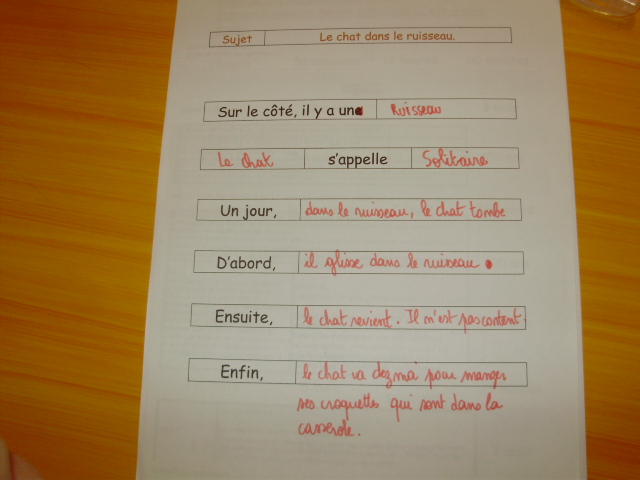 Sujet Le chat dans le ruisseau.
Sur le côté, il y a un Ruisseau
Le chat s'appelle Solitaire
Un jour, dans le ruisseau, le chat tombe
D'abord, il glisse dans le ruisseau.
Ensuite, le chat revient. Il n'est pas content.
Enfin, le chat va dez moi pour manger
ses croquettes qui sont dans la
casserole.